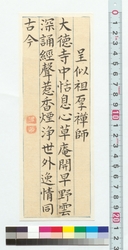 呈似祖孕禪師
大德寺中怙息心草庵開早野雲
深誦經聲惹香煙淨世外逸情同
古今